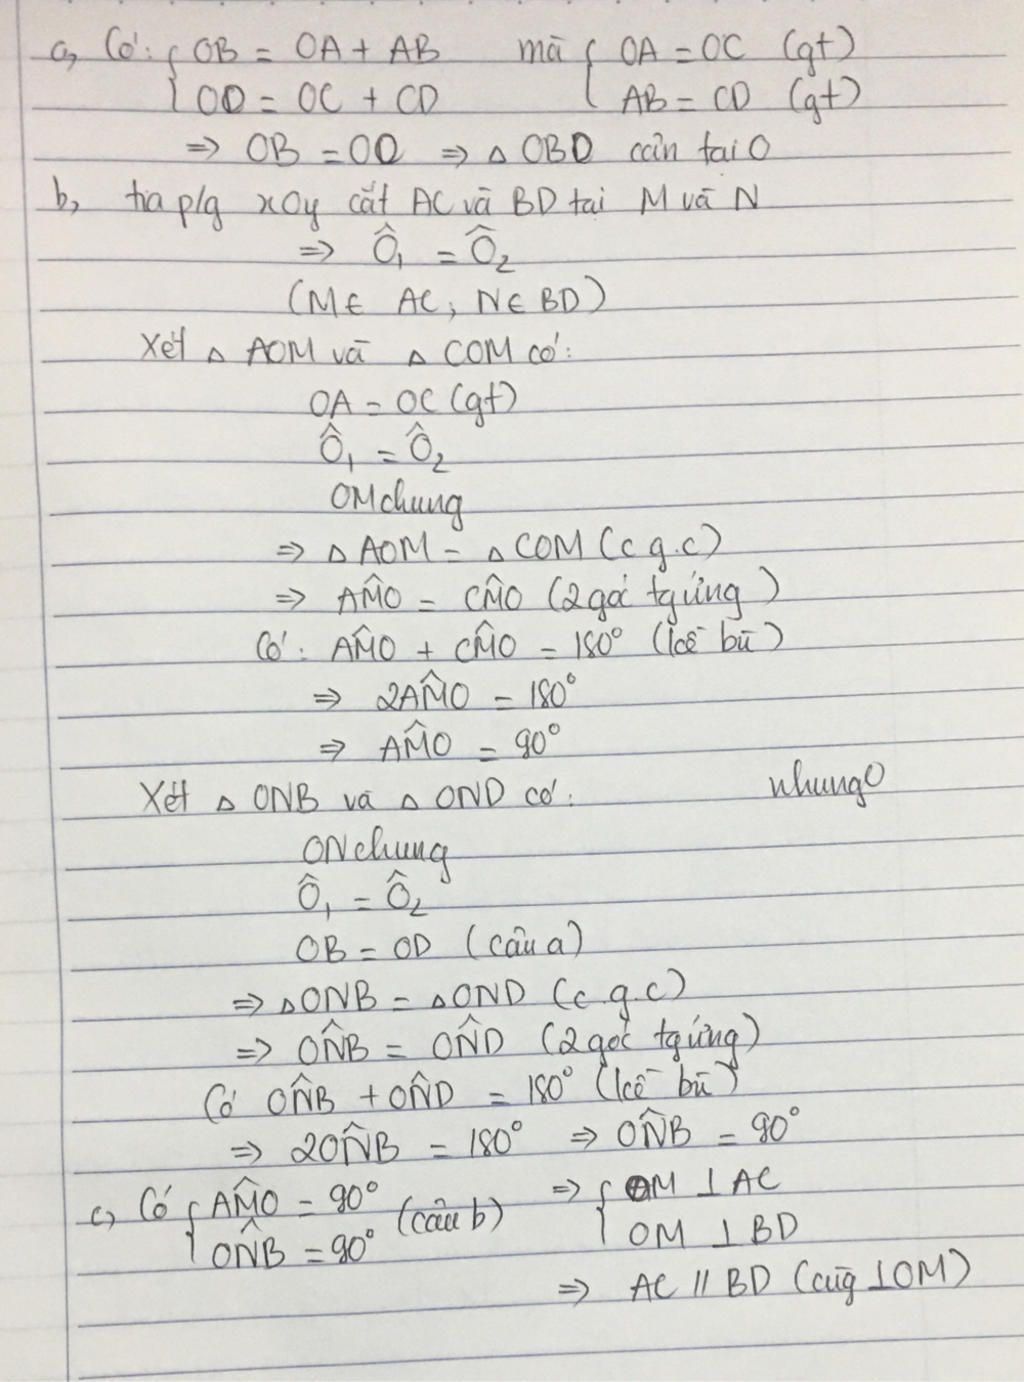 a, Có: { OB = OA + AB mà { OA = OC (gt)
OD = OC + CD AB = CD (gt)
=> OB = OD => △ OBD cân tại O
b, tia p/g xOy cắt AC và BD tại M và N
=> Ô₁ = Ô₂
(M ∈ AC; N ∈ BD)
Xét △ AOM và △ COM có:
OA = OC (gt)
Ô₁ = Ô₂
OM chung
=> △ AOM = △ COM (c g.c)
=> AM̂O = CM̂O (2 góc tg ứng)
Có: AM̂O + CM̂O = 180° (kề bù)
=> 2AM̂O = 180°
=> AM̂O = 90°
Xét △ ONB và △ OND có: nhungO
ON chung
Ô₁ = Ô₂
OB = OD (câu a)
=> △ ONB = △ OND (c.g.c)
=> ON̂B = ON̂D (2 góc tg ứng)
Có ON̂B + ON̂D = 180° (kề bù)
=> 2ON̂B = 180° => ON̂B = 90°
c, Có { AM̂O = 90° (câu b) => { OM ⊥ AC
ON̂B = 90° OM ⊥ BD
=> AC // BD (cùg ⊥ OM)